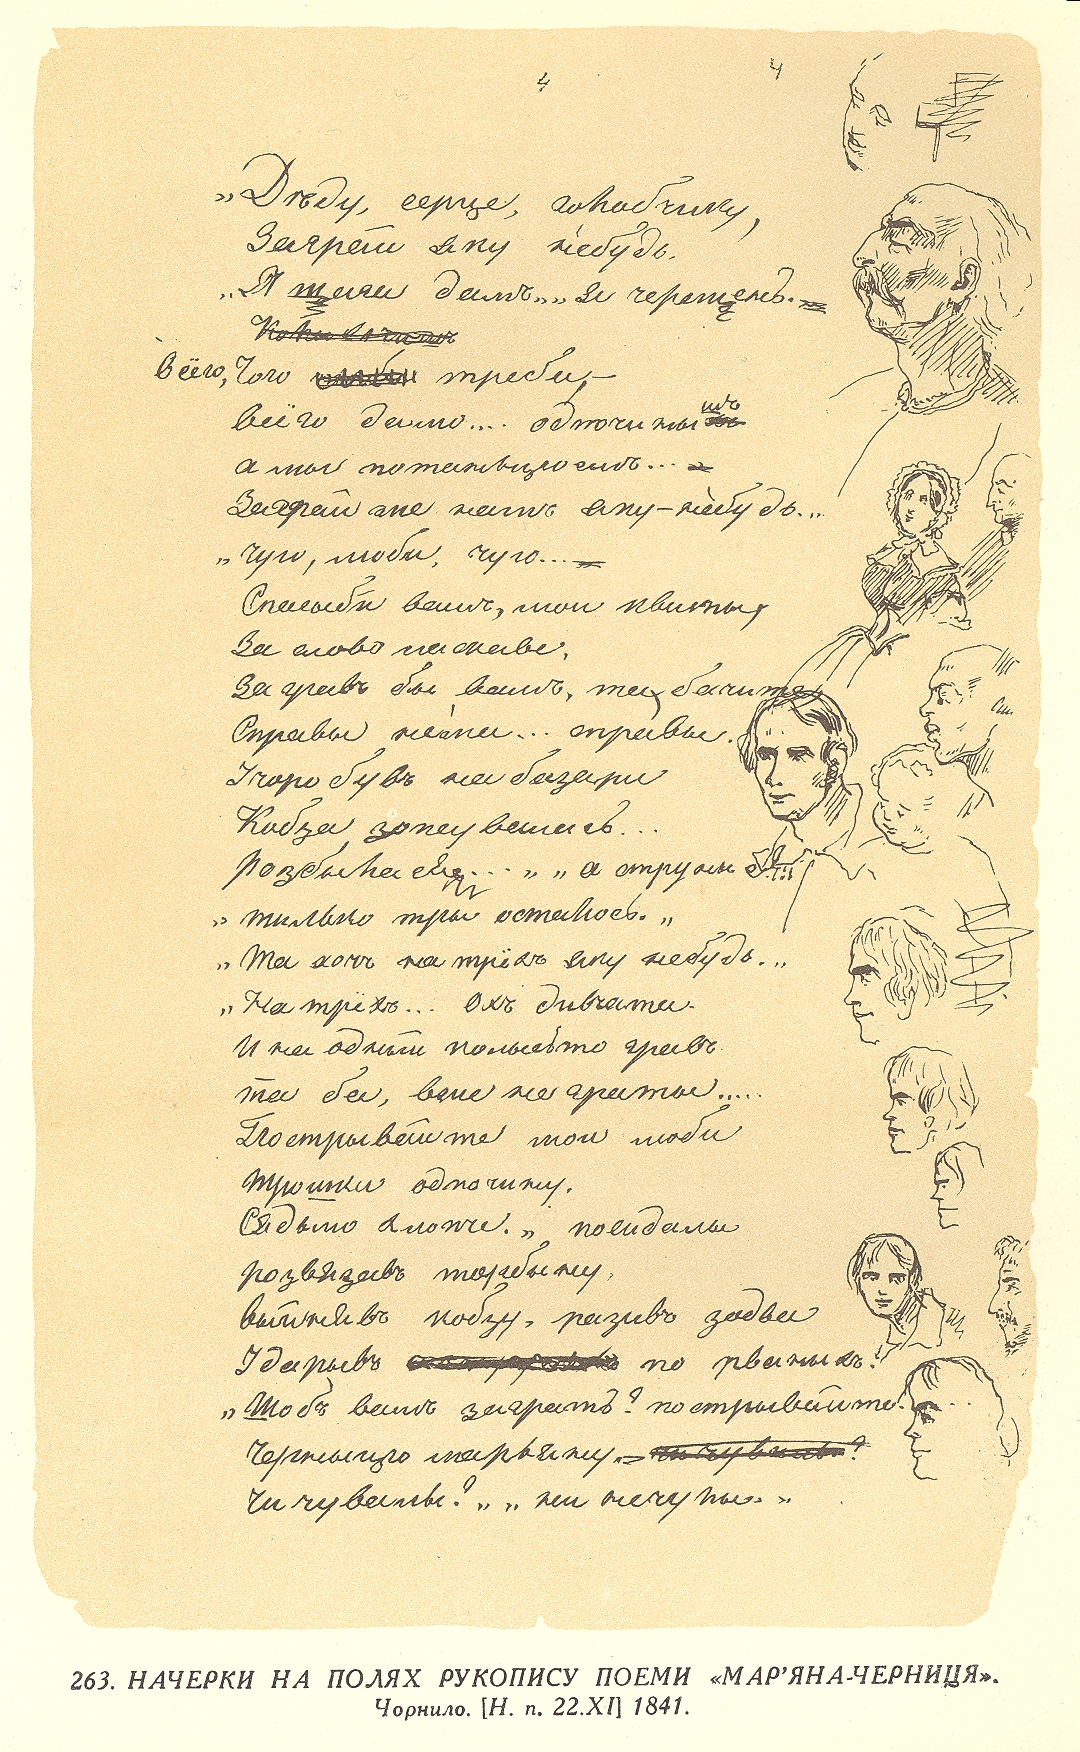 4 4
„Дѣду, серце, голобчику,
Заграй яку небудь.
„Я шага дамъ„ „Я черешень.
всёго, Чого треба,
всёго дамо.... одпочины шъ
а мы потанцюемъ...
Заграй же намъ яку-небудь.„
„Чую, люби, чую...
Спасыби вамъ, мои квиты,
За слово ласкаве,
Загравъ бы вамъ, та, бачите,
Справы нема... справы.
Учора бувъ на базари
Кобза зопсувалась...
Розбыласъ... „ „а струны
„тилько тры осталось.„
„Та хочъ на трёхъ яку небудь.„
„На трёхъ... Охъ дивчата.
И на одній колысьто гравъ
та ба, вже не граты.....
Пострывайте мои люби
Трошки одпочину.
Сядьмо хлопче.„ посидалы
розвязавъ торбыну,
выйнявъ кобзу, разивъ зодва
Ударывъ по рваныхъ.
„Щобъ вамъ заграть? пострывайте...
Черныцю марьяну.
Чи чувалы?„ „ни нечулы.„
263. НАЧЕРКИ НА ПОЛЯХ РУКОПИСУ ПОЕМИ «МАР’ЯНА-ЧЕРНИЦЯ».
Чорнило. [Н. п. 22.XI] 1841.